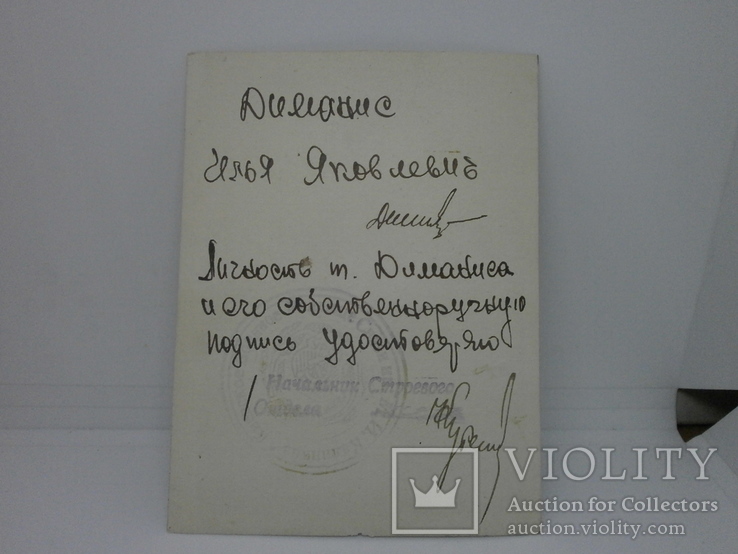 Диманис
Илья Яковлевич
Личность т. Диманиса
и его собственноручную
подпись удостоверяю
Начальник Строевого
Отдела
VIOLITY
Auction for Collectors
auction.violity.com